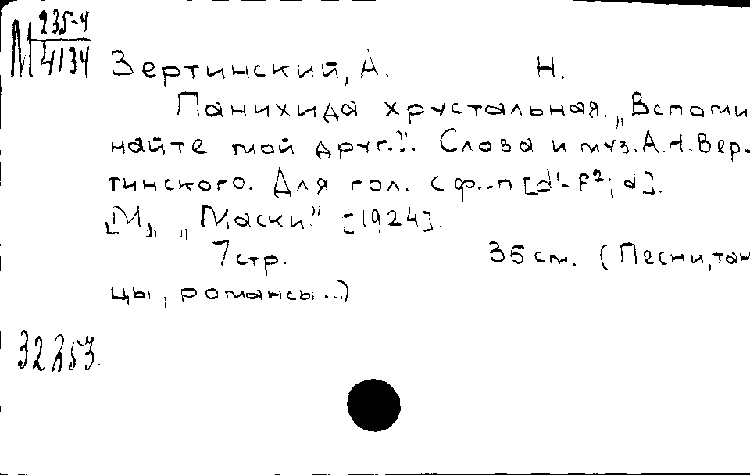 М 235-4
4134
Вертинский, А. Н.
Панихида хрустальная. „Вспоми
найте мой друг.". Слова и муз. А. Н. Вер-
тинского. Для гол. с ф.-п [d'-f²; d].
[М], „Маски" [1924].
7 стр. 35 см. (Песни, тан
цы, романсы...)
32353.